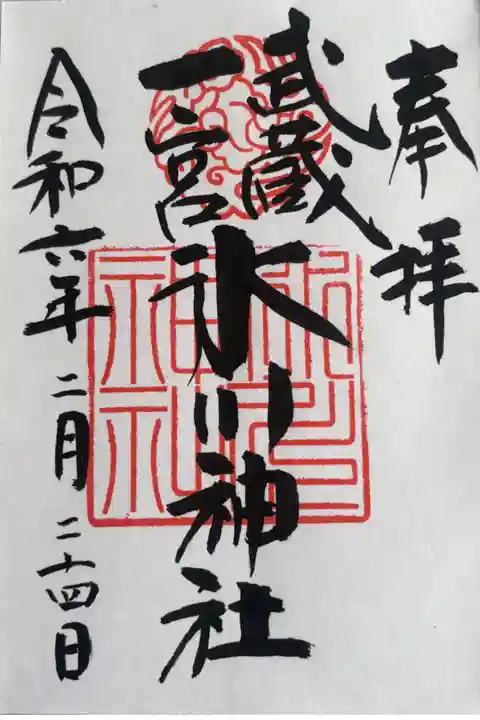 奉拝
武蔵
一宮
氷川神社
令和六年二月二十四日